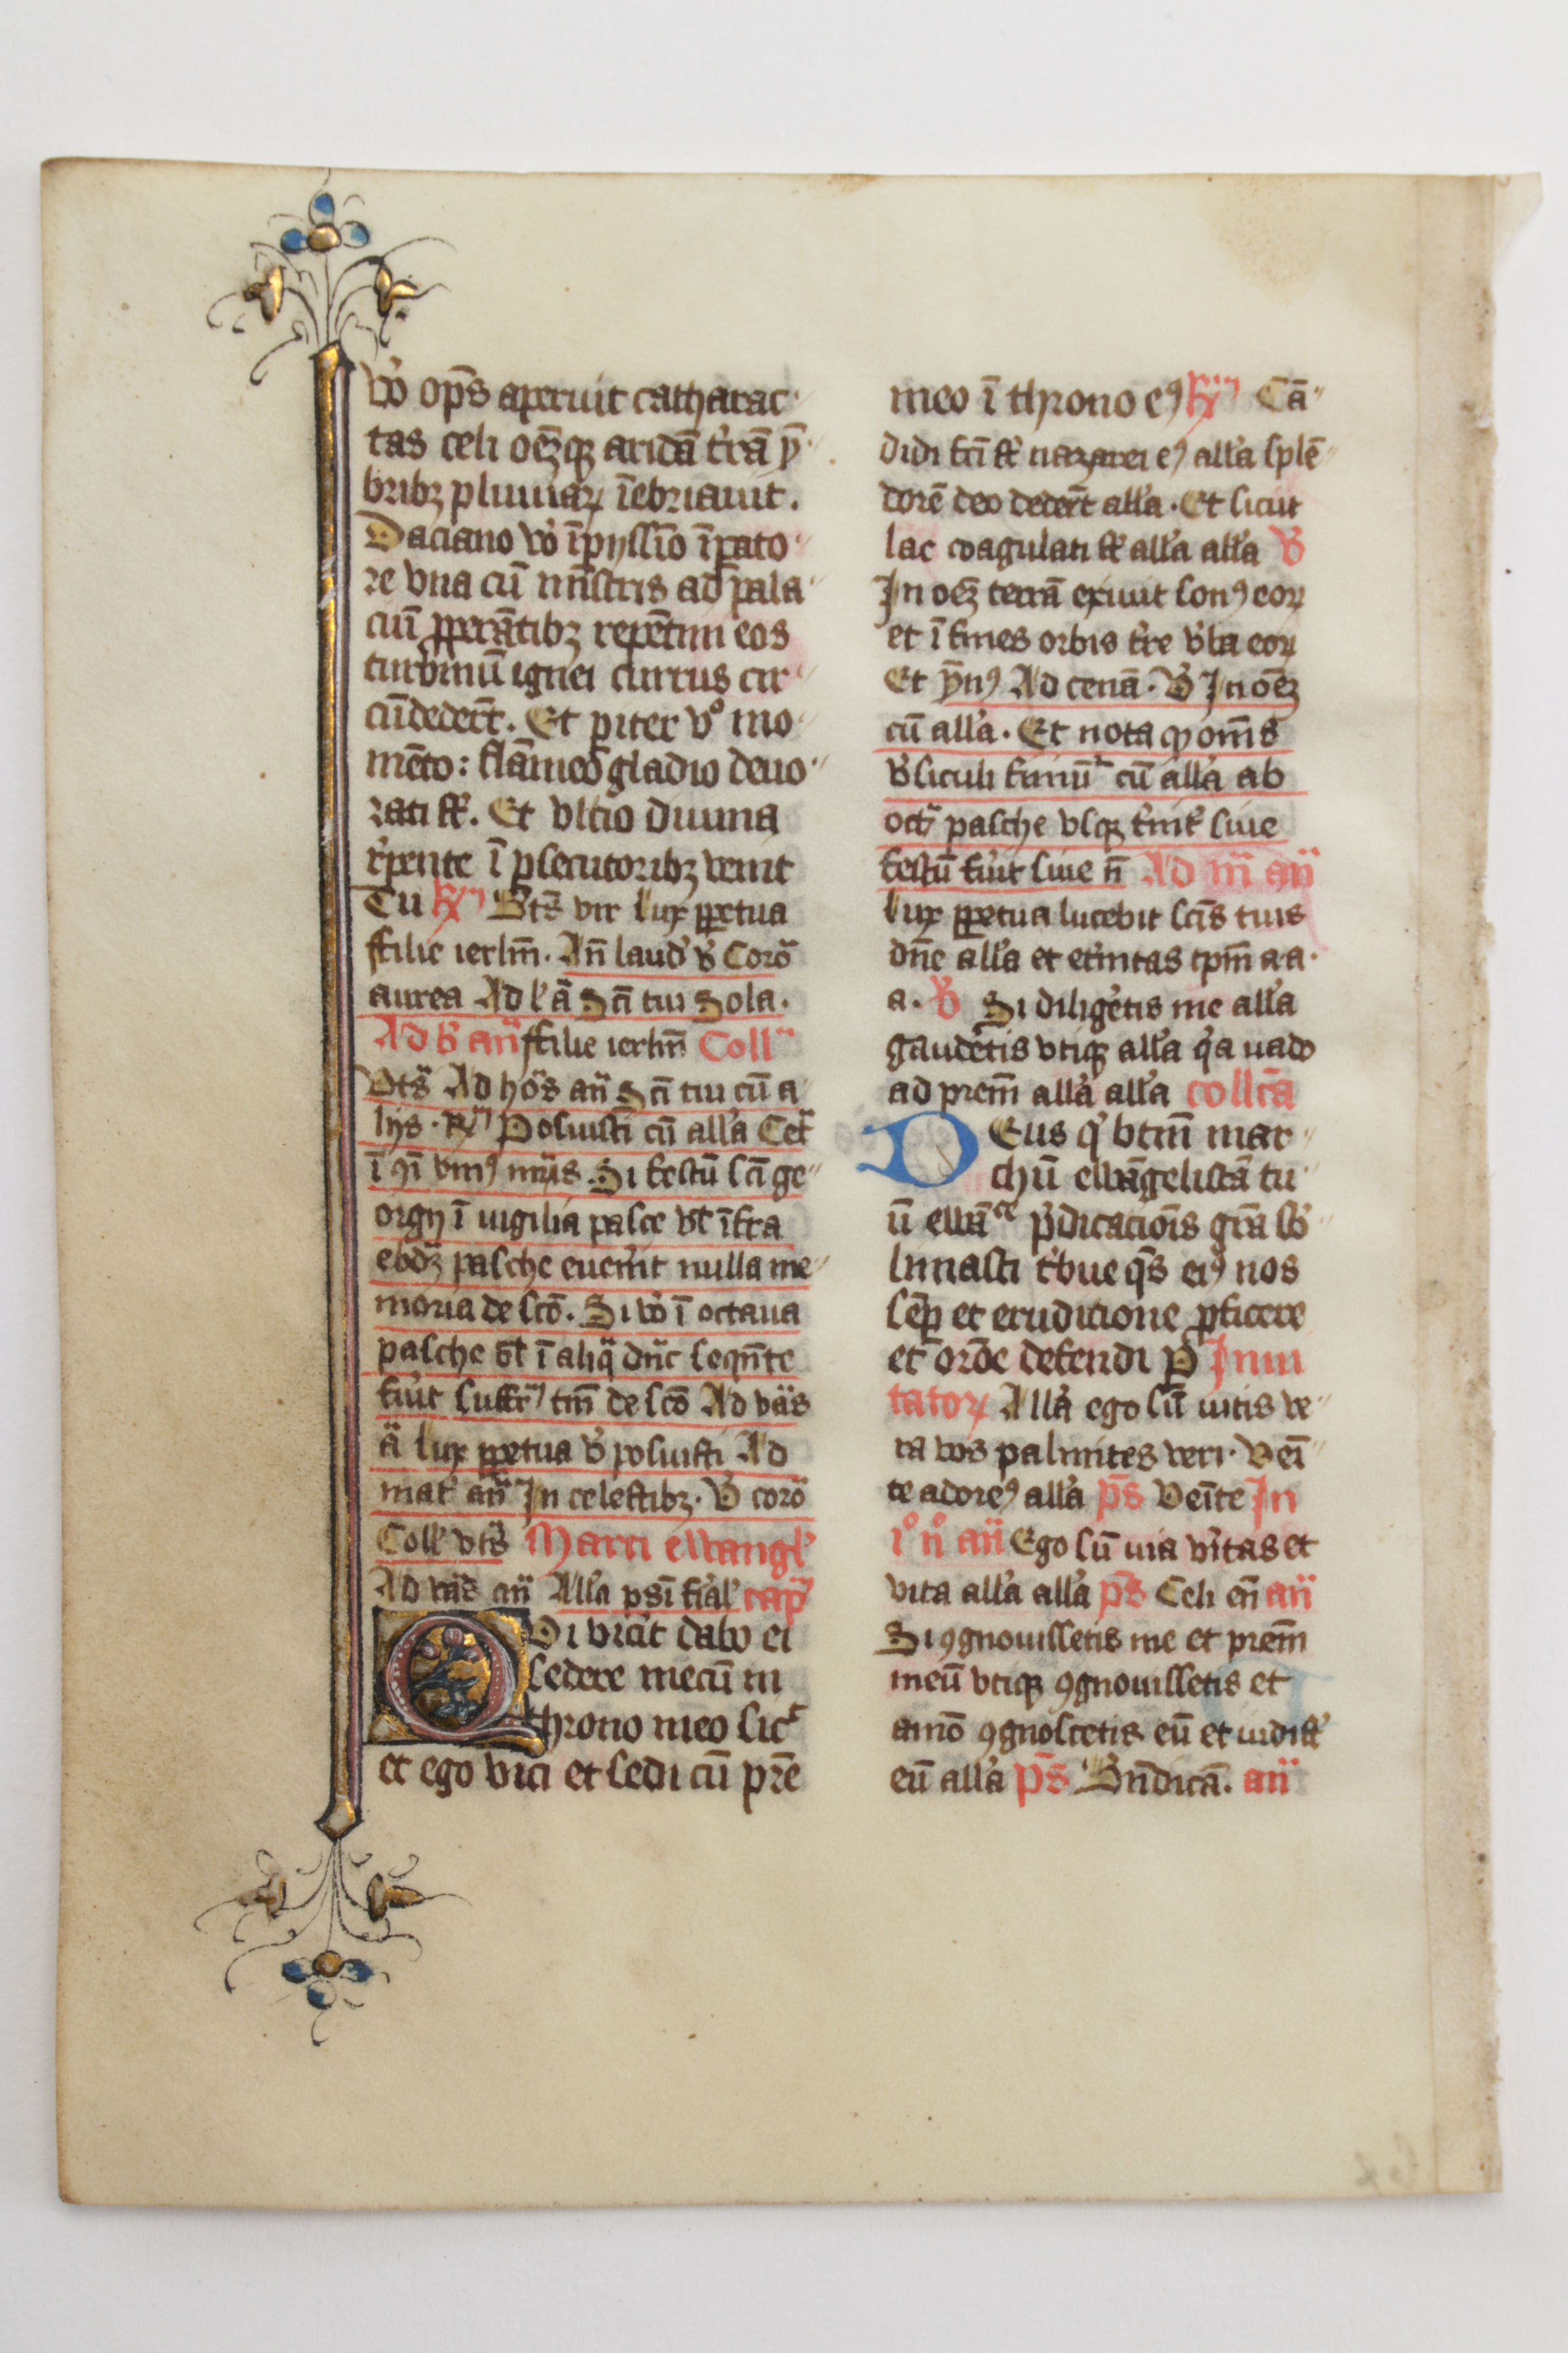 vo̾ op̅s aperuit catharac
tas celi oe̅zqꝫ aridā t̾rā y̅
bribꝫ pluuiaꝝ īebriauit.
Daciano vo̾ īpijssīo īꝑato
re vna cū mīstris ad pala
ciū ꝓperātibꝫ repētini eos
turbinū ignei currus cir
cūdeder̄t. Et p̱iter vº mo
mēto: flāmeo gladio deuo
rati ſt̄. Et vltio diuina
r̾pente ī ꝑsecutoribꝫ venit
Tu ℟ Bt̄s vir Lux ꝑpetua
ffilie ierlm̅. An̄ laud̾ v̾ Coro̅
aurea Ad l̾ ā Sc̄i tui Sola.
Ad b̾ an̄ ffilie ierlm̅ Coll̾
vt̄s Ad ho̅s an̄ Sc̄i tui cū a
lijs. ℟ Posuisti cū all̾a Cet̾
ī ꝯī vniꝰ mr̅is. Si festū sc̄i ge
orgij ī uigilia pasce vl̾ īfra
ebd̾ꝫ pasche euen̾it nulla me
moria de sc̄o. Si vo̾ ī octaua
pasche vl̾ ī aliq̄ dn̄c seqn̄te
fu̾it suffr̾ tm̄ de sc̄o Ad va̅s
ā lux ꝑpetua v̾ posuisti Ad
mat̾ an̄ In celestibꝫ. v̾ coro̅
Coll̾ vt̄s Marci ewangl̾
Ad va̅s an̄ All̾a psī fial̾ cap̄
Qvi vic̾it dabo ei
sedere mecū in
throno meo sic̾
et ego vici et sedi cū pr̄e
meo ī throno eꝰ ℟ Cā
didi fc̄i ſt̄ nazarei eꝰ all̾a splē
dorē deo deder̄t all̾a. Et sicut
lac coagulati ſt̄ all̾a all̾a v̾
In oēꝫ terrā exiuit sonꝰ eoꝝ
et ī fines orbis t̾re v̾ba eoꝝ
Et ym̅ꝰ Ad cenā. v̾ In oēꝫ
cū all̾a. Et nota ꝙ om̅s
v̾siculi finiū̾ cū all̾a ab
oct̾ pasche vsqꝫ t̾nit̾ siue
festū fu̾it siue n̄ Ad m̄ an̄
Lux ꝑpetua lucebit sc̄is tuis
dn̄e all̾a et et̾nitas tꝑm̅ a·a·
a. v̾ Si diligētis me all̾a
gaudētis vtiqꝫ all̾a q̾a uado
ad prem̅ all̾a all̾a collc̄a
DEus q̾ btm̅ mar
chū ewāgelistā tu
ū ewāce p̾dicaciōis gr̄a sb̾
limasti t̾bue qs̄ eiꝰ nos
sēꝑ et eruditione ꝓficere
et or̄oe defendi ꝑ Inui
tatoꝝ All̾a ego sū uitis ve
ra vos palmites veri. Veī
te adoreꝰ all̾a ps̄ Veīte In
1º nº an̄ Ego sū uia v̾itas et
vita all̾a all̾a ps̄ Celi en̄ an̄
Si ꝯgnouissetis me et prem̅
meū vtiqꝫ ꝯgnouissetis et
amō ꝯgnoscetis eū et uidist̾
eū all̾a ps̄ Bn̄dicā. an̄